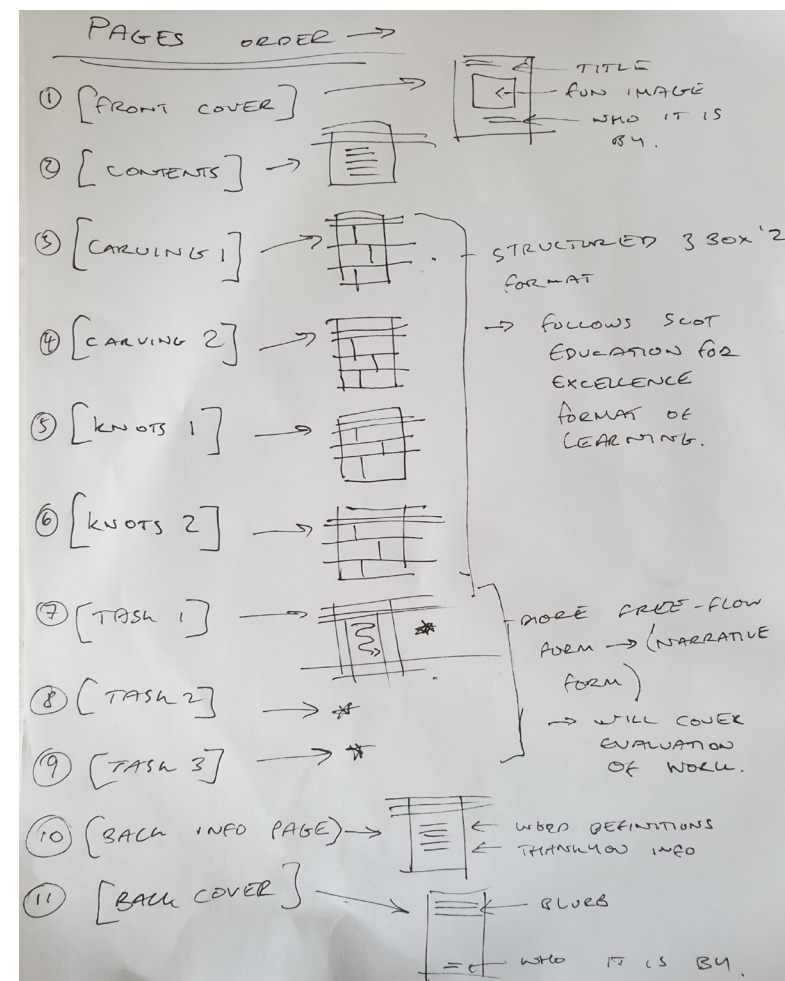 PAGES ORDER →
① [FRONT COVER] →
TITLE
FUN IMAGE
WHO IT IS
BY.
② [CONTENTS] →
③ [CARVING 1] →
STRUCTURED 3 BOX '2
FORMAT
→ FOLLOWS SCOT
EDUCATION FOR
EXCELLENCE
FORMAT OF
LEARNING.
④ [CARVING 2] →
⑤ [KNOTS 1] →
⑥ [KNOTS 2] →
⑦ [TASK 1] →
MORE FREE-FLOW
FORM → (NARRATIVE
FORM)
→ WILL COVER
EVALUATION
OF WORK.
⑧ [TASK 2] → *
⑨ [TASK 3] → *
⑩ [BACK INFO PAGE] →
← WORD DEFINITIONS
← THANKYOU INFO
⑪ [BACK COVER] →
BLURB
WHO IT IS BY.